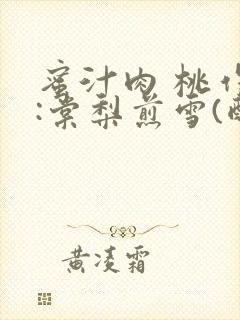 蜜汁肉桃
:棠梨煎雪(
黄凌霜